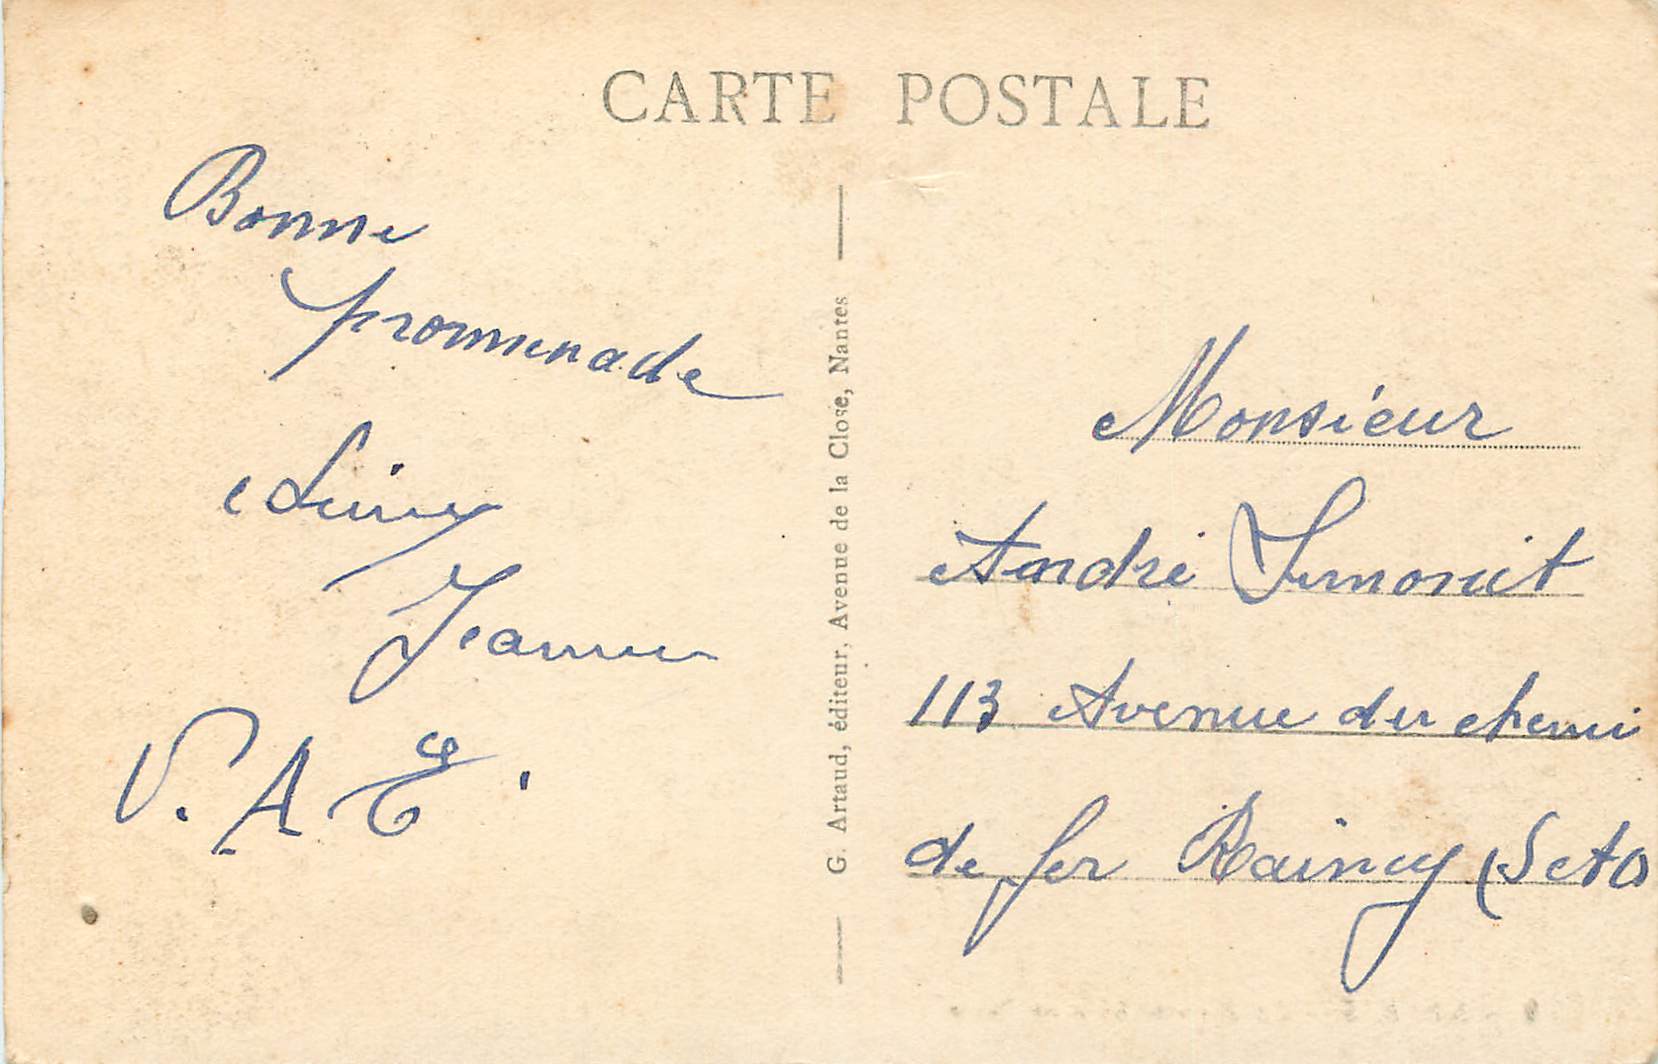 CARTE POSTALE
Bonne
promenade
Jeanne
V. A
G. Artaud, éditeur, Avenue de la Close, Nantes
Monsieur
André Simonit
113 Avenue du chemi
de fer Raincy (S et O